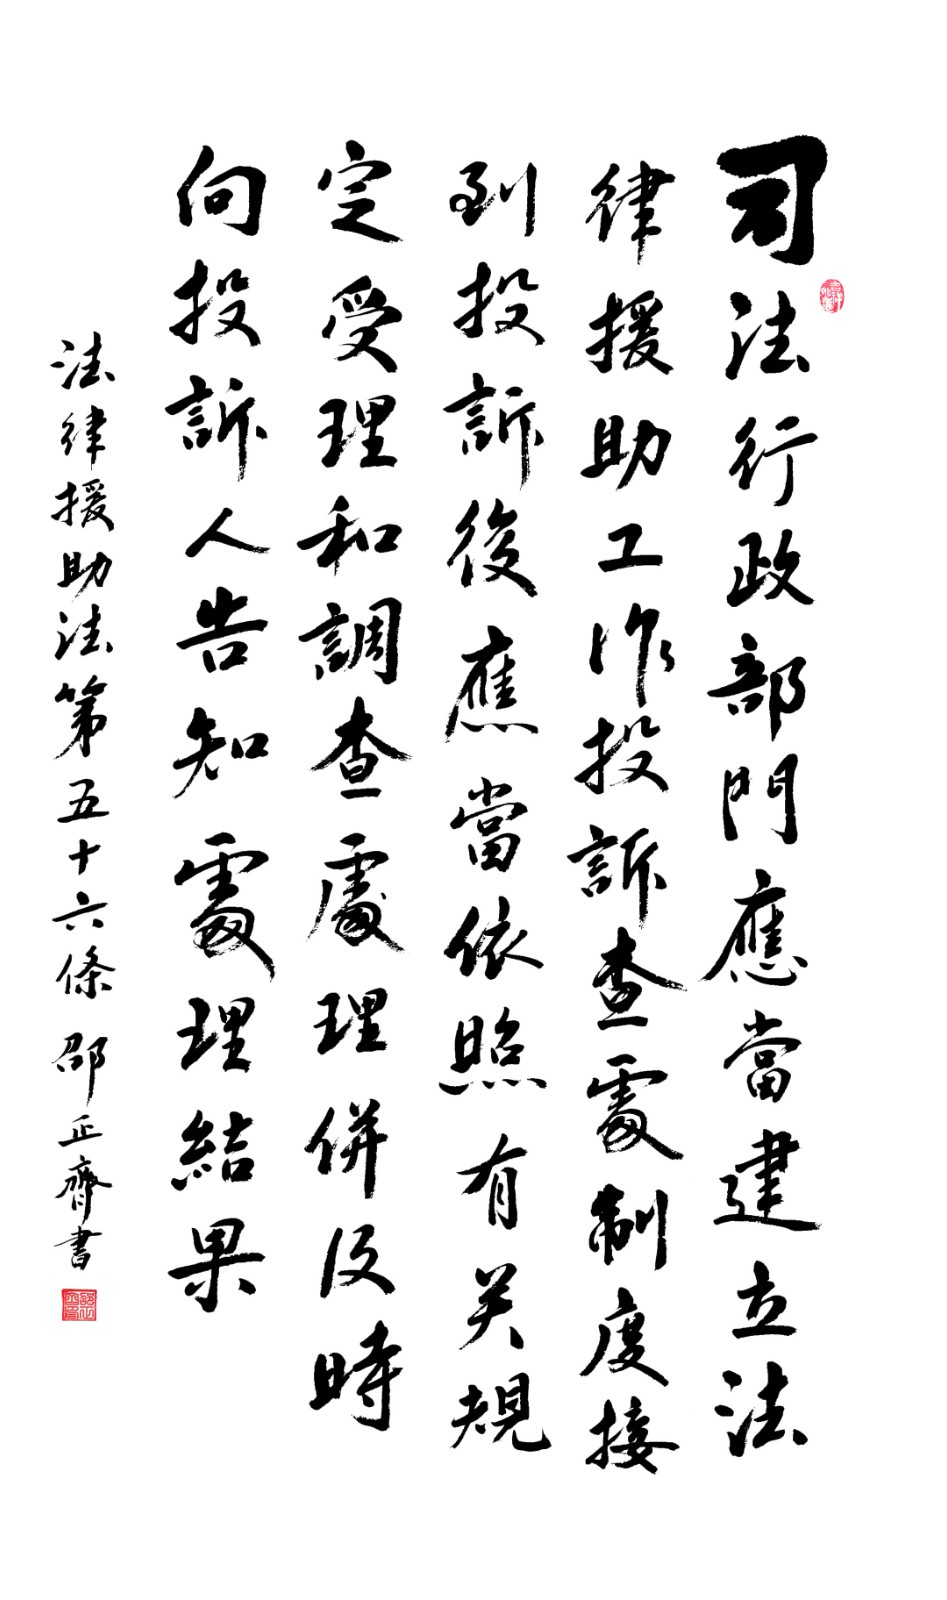 司法行政部門應當建立法
律援助工作投訴查處制度接
到投訴後應當依照有关規
定受理和調查處理併及時
向投訴人告知處理結果
法律援助法第五十六條 邵正齊書